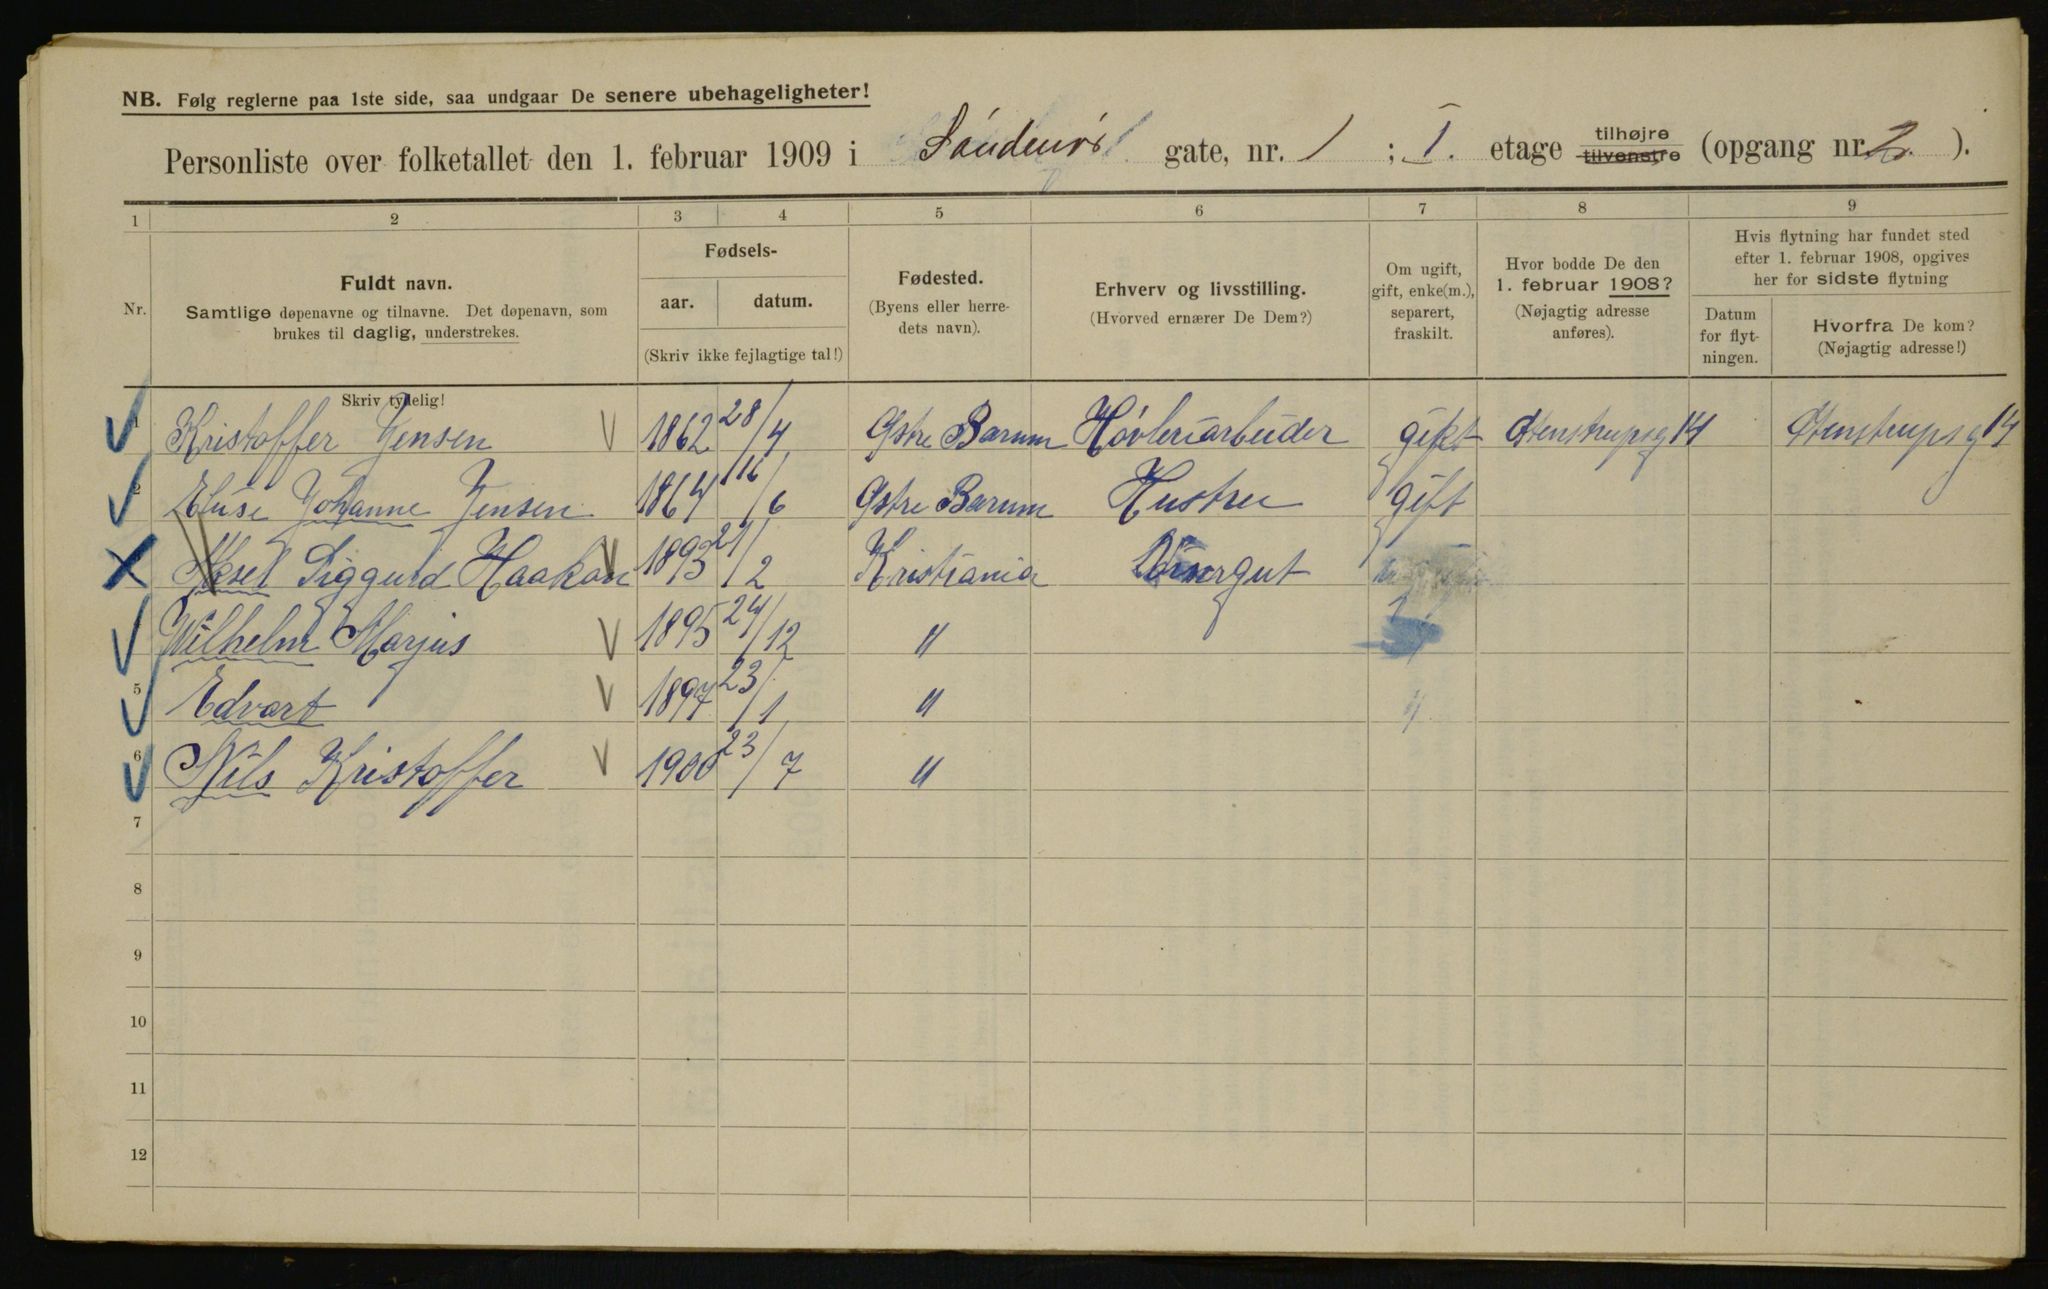 NB. Følg reglerne paa 1ste side, saa undgaar De senere ubehageligheter!
Personliste over folketallet den 1. februar 1909 i gate, nr. 1 ; I. etage tilhøjre tilvenstre (opgang nr. 2. ).
1 2 3 4 5 6 7 8 9
Nr.
Fuldt navn.
Samtlige døpenavne og tilnavne. Det døpenavn, som
brukes til daglig, understrekes.
Skriv tydelig!
Fødsels-
aar. datum.
(Skriv ikke fejlagtige tal!)
Fødested.
(Byens eller herre-
dets navn).
Erhverv og livsstilling.
(Hvorved ernærer De Dem?)
Om ugift,
gift, enke(m.),
separert,
fraskilt.
Hvor bodde De den
1. februar 1908?
(Nøjagtig adresse
anføres).
Hvis flytning har fundet sted
efter 1. februar 1908, opgives
her for sidste flytning
Datum
for flyt-
ningen.
Hvorfra De kom?
(Nøjagtig adresse!)
1 Kristoffer Jensen 1862 28/4 Østre Bærum Høvleriarbeider gikt Stenstrupsg 14 Stenstrupsg 14
2 Elise Johanne Jensen 1864 16/6 Østre Bærum Hustru gift
Aksel Siggurd Haakon 1893 21/2 Kristiania Visergut
Wilhelm Marjus 1895 24/12 "
5 Edvart 1897 23/1 " "
6 Nils Kristoffer 1900 23/7 "
7
8
9
10
11
12